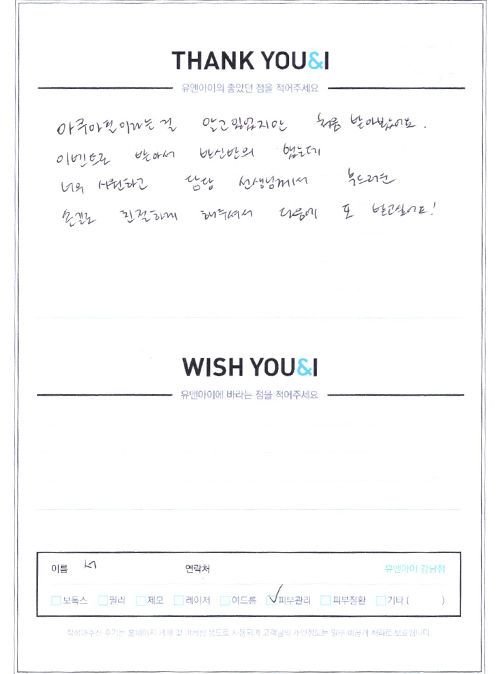 THANK YOU&I
유앤아이의 좋았던 점을 적어주세요
아쿠아필이라는걸 알고있었지만 처음 받아봤어요.
이벤트로 받아서 반신반의 했는데
너무 시원하고 담당 선생님께서 부드러운
손길로 친절하게 해주셔서 다음에 또 받고싶어요!
WISH YOU&I
유앤아이에 바라는 점을 적어주세요
이름 서 연락처 유앤아이 강남점
보톡스 필러 제모 레이저 여드름 피부관리 피부질환 기타 ( )